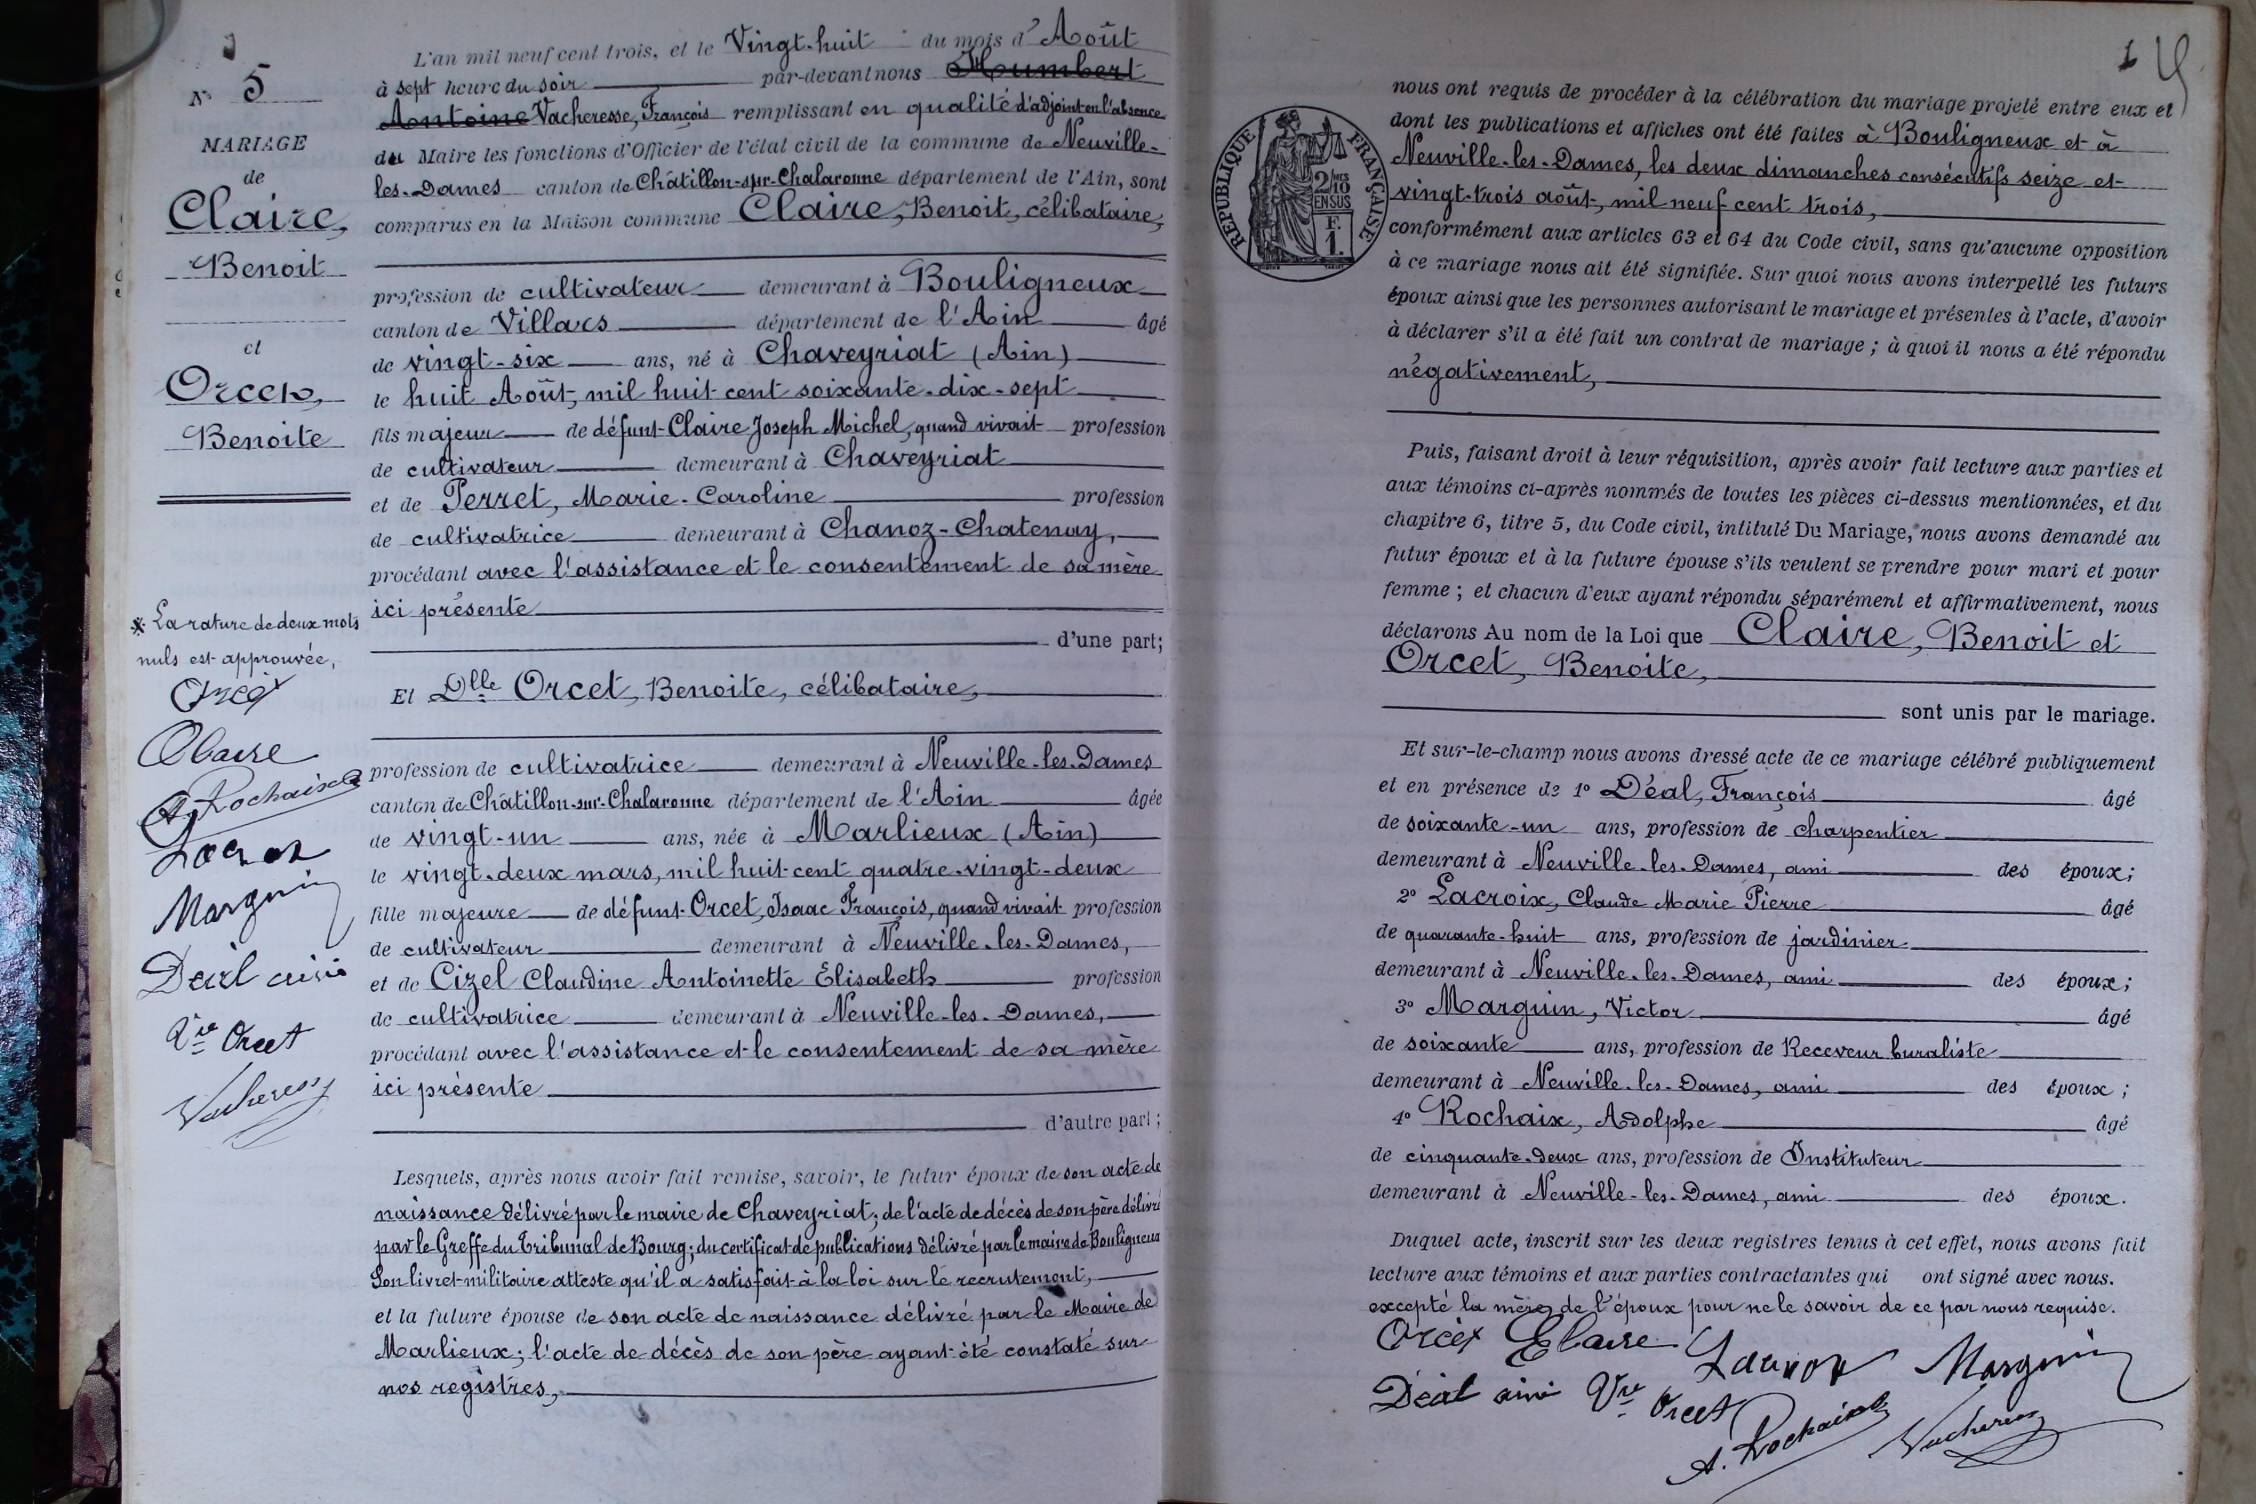 N° 5
MARIAGE
de
Claire,
Benoit
et
Orcet,
Benoite
* La rature de deux mots
nuls est approuvée,
Orcet
Claire
A. Rochaix
Lacroix
Marguin
Déal ainé
Vve Orcet
Vacheresse
L'an mil neuf cent trois, et le Vingt-huit du mois d'Août
à sept heure du soir par-devant nous Humbert
Antoine Vacheresse, François remplissant en qualité d'adjoint en l'absence
du Maire les fonctions d'Officier de l'état civil de la commune de Neuville-
les-Dames canton de Châtillon-sur-Chalaronne département de l'Ain, sont
comparus en la Maison commune Claire, Benoit, célibataire,
profession de cultivateur demeurant à Bouligneux
canton de Villars département de l'Ain âgé
de vingt-six ans, né à Chaveyriat (Ain)
le huit Août, mil huit cent soixante-dix-sept
fils majeur de défunt Claire Joseph Michel, quand vivait profession
de cultivateur demeurant à Chaveyriat
et de Perret, Marie-Caroline profession
de cultivatrice demeurant à Chanoz-Chatenay,
procédant avec l'assistance et le consentement de sa mère
ici présente
d'une part;
Et Dlle Orcet, Benoite, célibataire,
profession de cultivatrice demeurant à Neuville-les-Dames
canton de Châtillon-sur-Chalaronne département de l'Ain âgée
de vingt-un ans, née à Marlieux (Ain)
le vingt-deux mars, mil huit cent quatre-vingt-deux
fille majeure de défunt Orcet, Isaac François, quand vivait profession
de cultivateur demeurant à Neuville-les-Dames,
et de Cizel Claudine Antoinette Elisabeth profession
de cultivatrice demeurant à Neuville-les-Dames,
procédant avec l'assistance et le consentement de sa mère
ici présente
d'autre part;
Lesquels, après nous avoir fait remise, savoir, le futur époux de son acte de
naissance délivré par le maire de Chaveyriat; de l'acte de décès de son père délivré
par le Greffe du Tribunal de Bourg; du certificat de publications délivré par le maire de Bouligneux
Son livret militaire atteste qu'il a satisfait à la loi sur le recrutement,
et la future épouse de son acte de naissance délivré par le Maire de
Marlieux; l'acte de décès de son père ayant été constaté sur
nos registres,
RÉPUBLIQUE FRANÇAISE
2/10 EN SUS
F. 1.
nous ont requis de procéder à la célébration du mariage projeté entre eux et
dont les publications et affiches ont été faites à Bouligneux et à
Neuville-les-Dames, les deux dimanches consécutifs seize et
vingt-trois août, mil neuf cent trois,
conformément aux articles 63 et 64 du Code civil, sans qu'aucune opposition
à ce mariage nous ait été signifiée. Sur quoi nous avons interpellé les futurs
époux ainsi que les personnes autorisant le mariage et présentes à l'acte, d'avoir
à déclarer s'il a été fait un contrat de mariage; à quoi il nous a été répondu
négativement,
Puis, faisant droit à leur réquisition, après avoir fait lecture aux parties et
aux témoins ci-après nommés de toutes les pièces ci-dessus mentionnées, et du
chapitre 6, titre 5, du Code civil, intitulé Du Mariage, nous avons demandé au
futur époux et à la future épouse s'ils veulent se prendre pour mari et pour
femme; et chacun d'eux ayant répondu séparément et affirmativement, nous
déclarons Au nom de la Loi que Claire, Benoit et
Orcet, Benoite,
sont unis par le mariage.
Et sur-le-champ nous avons dressé acte de ce mariage célébré publiquement
et en présence de 1° Déal, François âgé
de soixante-un ans, profession de charpentier
demeurant à Neuville-les-Dames, ami des époux;
2° Lacroix, Claude Marie Pierre âgé
de quarante-huit ans, profession de jardinier
demeurant à Neuville-les-Dames, ami des époux;
3° Marguin, Victor âgé
de soixante ans, profession de Receveur buraliste
demeurant à Neuville-les-Dames, ami des époux;
4° Rochaix, Adolphe âgé
de cinquante-deux ans, profession de Instituteur
demeurant à Neuville-les-Dames, ami des époux.
Duquel acte, inscrit sur les deux registres tenus à cet effet, nous avons fait
lecture aux témoins et aux parties contractantes qui ont signé avec nous.
excepté la mère de l'époux pour ne le savoir de ce par nous requise.
Orcet Claire Lacroix Marguin
Déal ainé Vve Orcet
A. Rochaix Vacheresse